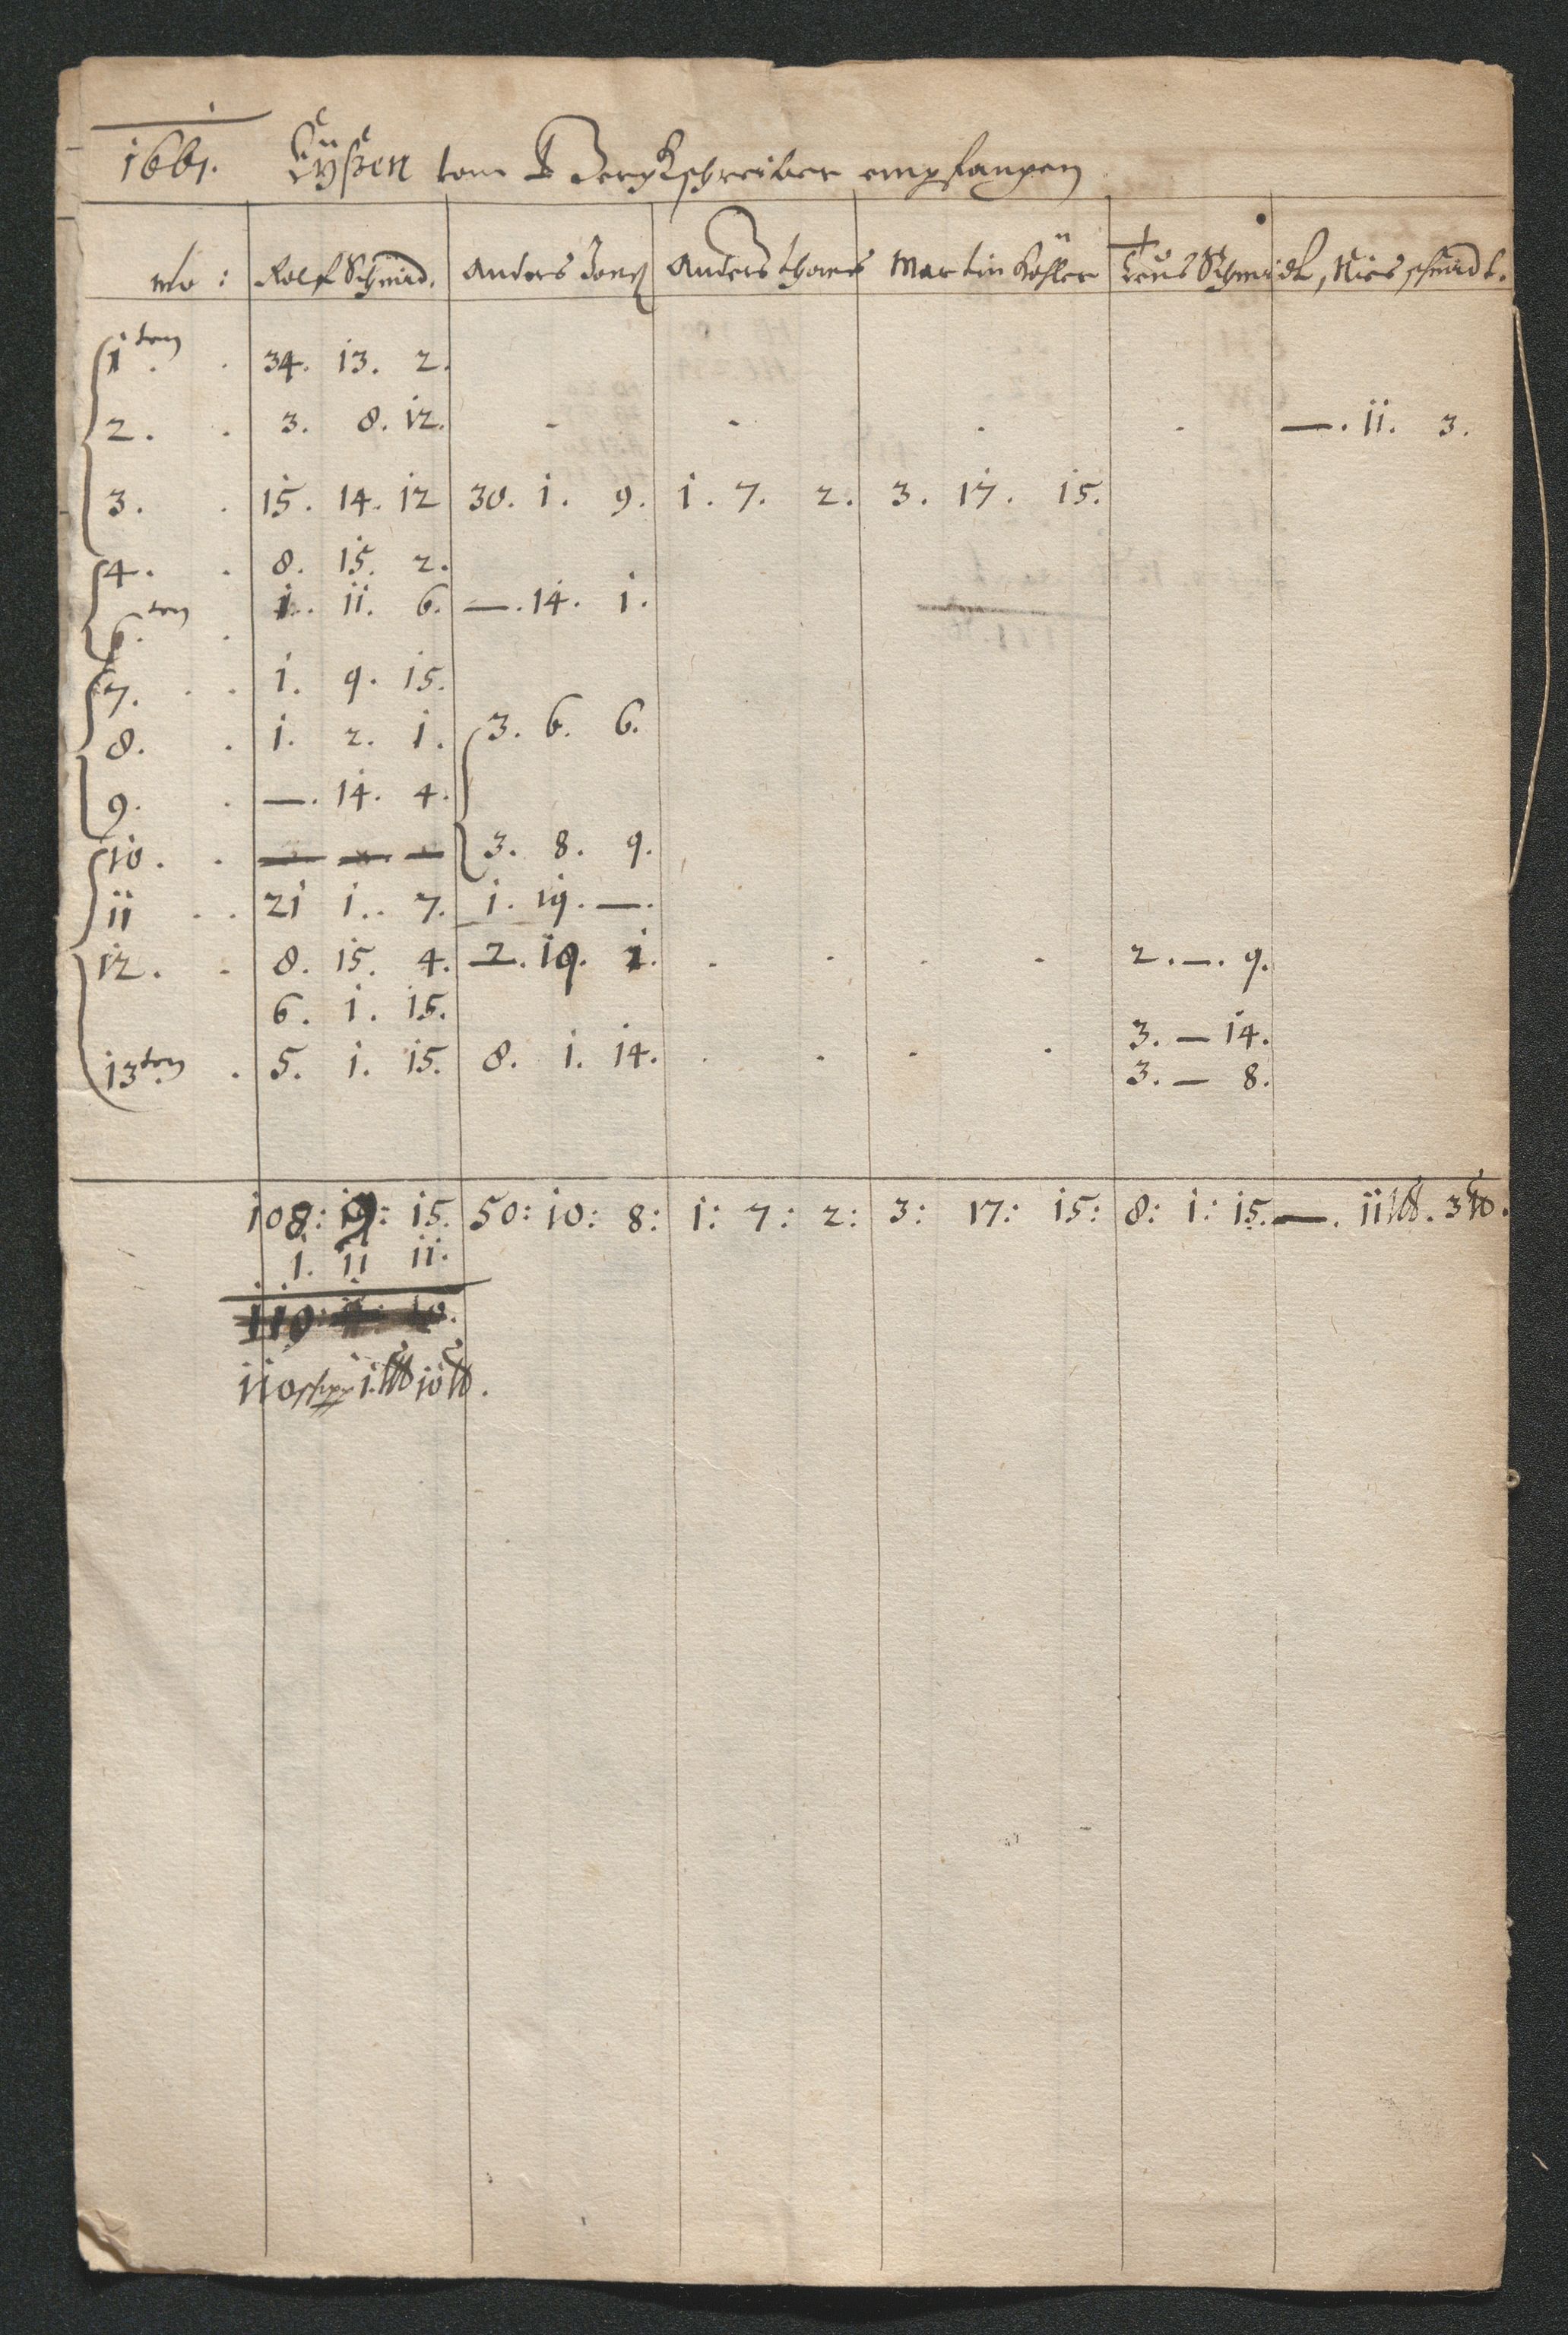 1661. Eyßen vom Bergkschreiber empfangen
mo: Rolf Schmid. Anders Anders Martin Köhler Schmidt, Schmidt.
1ten . 34. 13. 2.
2. . 3. 8. 12. - - - - —. 11. 3.
3. . 15. 14. 12 30. 1. 9. 1. 7. 2. 3. 17. 15.
4. . 8. 15. 2.
6.ten . 1. 11. 6. —. 14. 1.
7. . . 1. 9. 15.
8. . 1. 2. 1. 3. 6. 6.
9. . —. 14. 4.
10. . — — — 3. 8. 9.
11 . . 21 1. 7. 1. 19. —.
12. . 8. 15. 4. 2. 19. 1. . . . . 2. —. 9.
6. 1. 15.
3. — 14.
13ten . 5. 1. 15. 8. 1. 14. . . . .
3. — 8.
108: 9: 15. 50: 10: 8: 1: 7: 2: 3: 17: 15: 8: 1: 15. —. 11 l℔. 3 ℔.
1. 11 11.
110 1. l℔ 10 ℔.